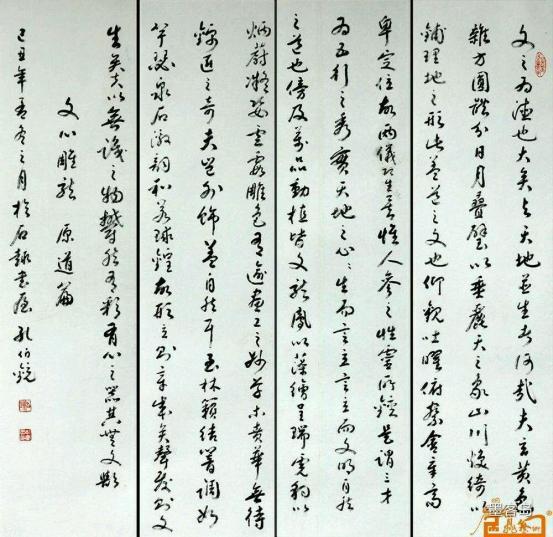 文之為德也大矣與天地並生者何哉夫玄黃色
雜方圓體分日月疊璧以垂麗天之象山川煥綺以
鋪理地之形此蓋道之文也仰觀吐曜俯察含章高
卑定位故兩儀既生矣惟人參之性靈所鍾是謂三才
為五行之秀實天地之心心生而言立言立而文明自然
之道也傍及萬品動植皆文龍鳳以藻繪呈瑞虎豹以
炳蔚凝姿雲霞雕色有逾畫工之妙草木賁華無待
錦匠之奇夫豈外飾蓋自然耳至林籟結響調如
竽瑟泉石激韻和若球鍠故形立則章成矣聲發則文
生矣夫以無識之物鬱然有彩有心之器其無文歟
文心雕龍 原道篇
己丑年之月於石書屋孔伯